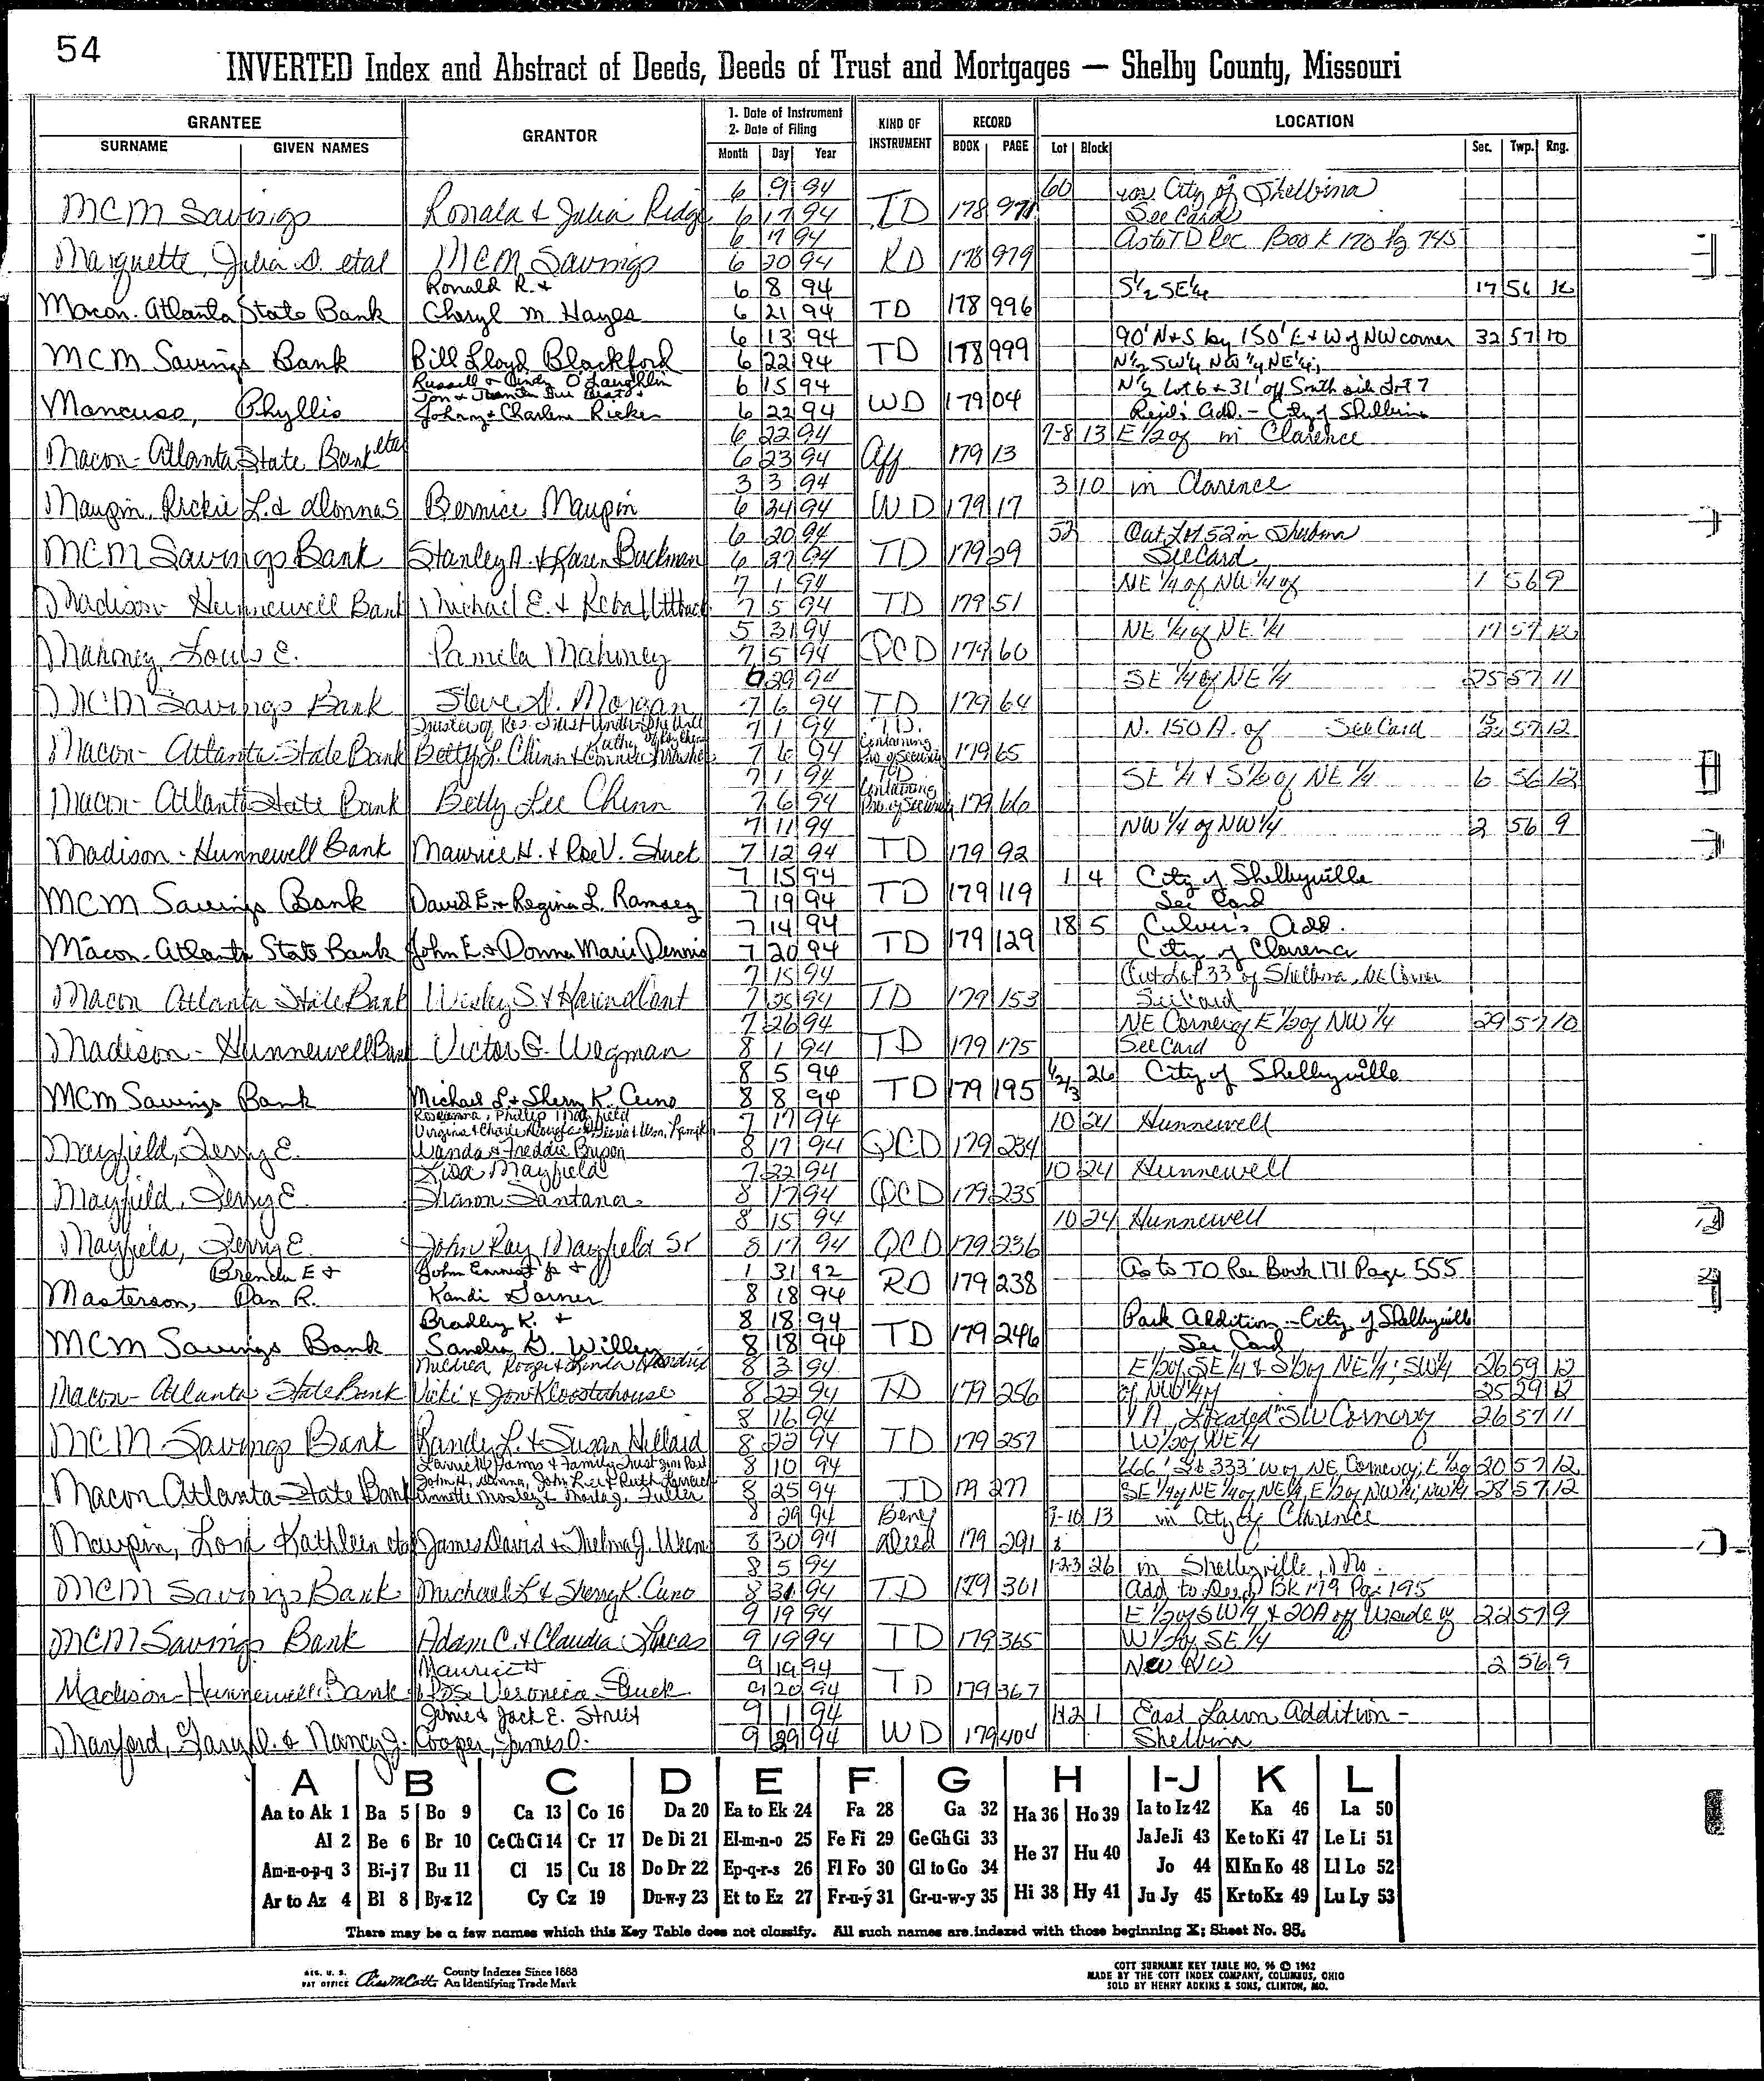 54
INVERTED Index and Abstract of Deeds, Deeds of Trust and Mortgages — Shelby County, Missouri
GRANTEE
SURNAME GIVEN NAMES
GRANTOR
1. Date of Instrument
2. Date of Filing
Month Day Year
KIND OF INSTRUMENT
RECORD
BOOK PAGE
LOCATION
Lot Block Sec. Twp. Rng.
6 9 94 60 City of Shelbina
MCM Savings Ronald & Julia Ridge 6 17 94 TD 178 971 See Card
6 17 94 As to TD Rec Book 170 Pg 745
Marquette, Julia D. etal MCM Savings 6 20 94 RD 178 979
Ronald R. & 6 8 94 S½ SE¼ 17 56
Macon-Atlanta State Bank Cheryl M. Hayes 6 21 94 TD 178 996
6 13 94 90' N+S by 150' E+W of NW corner 32 57 10
MCM Savings Bank Bill Lloyd Blackford 6 22 94 TD 178 999 N½ SW¼ NW¼ NE¼;
Russell & Cindy O'Laughlin 6 15 94 N½ Lot 6 & 31' off South side Lot 7
Mancuso, Phyllis Johnny & Charlene Ricker 6 22 94 WD 179 04 Reid's Add. - City of Shelbina
6 22 94 7-8 13 E 1/2 of in Clarence
Macon-Atlanta State Bank etal 6 23 94 Aff 179 13
3 3 94 3 10 in Clarence
Maupin, Rickie L. & Donna S Bernice Maupin 6 24 94 WD 179 17
6 20 94 52 Out Lot 52 in Shelbina
MCM Savings Bank Stanley A. & Karen Buckman 6 27 94 TD 179 29 See Card
7 1 94 NE 1/4 of NW 1/4 of 1 56 9
Madison-Hunnewell Bank Michael E. & Reba Utterback 7 5 94 TD 179 51
5 31 94 NE 1/4 of NE 1/4 17 57
Mahoney, Louis E. Pamela Mahoney 7 5 94 QCD 179 60
6 29 94 SE 1/4 of NE 1/4 25 57 11
MCM Savings Bank Steve A. Morgan 7 6 94 TD 179 64
7 1 94 T.D. N. 150 A. of See Card 57 12
Macon-Atlanta State Bank Betty L. Chinn & Connie 7 6 94 Containing 179 65
7 1 94 TD SE 1/4 & S 1/2 of NE 1/4 6 56 12
Macon-Atlanta State Bank Betty Lee Chinn 7 6 94 Containing 179 66
7 11 94 NW 1/4 of NW 1/4 2 56 9
Madison-Hunnewell Bank Maurice H. & Rose V. Shuck 7 12 94 TD 179 92
7 15 94 1 4 City of Shelbyville
MCM Savings Bank David E. & Regina L. Ramsey 7 19 94 TD 179 119 See Card
7 14 94 18 5 Culver's Add.
Macon-Atlanta State Bank John E. & Donna Marie Dennis 7 20 94 TD 179 129 City of Clarence
7 15 94 Out Lot 33 of Shelbina, NE Corner
Macon Atlanta State Bank Wesley S. & 7 25 94 TD 179 153 See Card
7 26 94 NE Corner of E 1/2 of NW 1/4 29 57 10
Madison-Hunnewell Bank Victor G. Wegman 8 1 94 TD 179 175 See Card
8 5 94 1/2/3 26 City of Shelbyville
MCM Savings Bank Michael L & Sherry K. Cuno 8 8 94 TD 179 195
Roseanna, Phillip Mayfield 7 17 94 10 24 Hunnewell
Mayfield, Terry E. Wanda & Freddie Bryson 8 17 94 QCD 179 234
Lisa Mayfield 7 22 94 10 24 Hunnewell
Mayfield, Terry E. Sharon Santana 8 17 94 QCD 179 235
8 15 94 10 24 Hunnewell
Mayfield, Terry E. John Ray Mayfield Sr 8 17 94 QCD 179 236
Brenda E & John Earnest Jr & 1 31 92 As to TD Rec Book 171 Page 555
Masterson, Dan R. Kandi Garner 8 18 94 RD 179 238
Bradley K. & 8 18 94 Park Addition - City of Shelbyville
MCM Savings Bank Sandra G. Willey 8 18 94 TD 179 246 See Card
Mildred, Roger & Linda 8 3 94 E 1/2 of SE 1/4 & S 1/2 of NE 1/4; SW 1/4 26 59 12
Macon-Atlanta State Bank Vicki & Jon Kloosterhouse 8 22 94 TD 179 256 of NW 1/4 25 59 12
8 16 94 1 A Located in SW Corner of 26 57 11
MCM Savings Bank Randy L. & Susan Hillard 8 22 94 TD 179 257 W 1/2 of NE 1/4
8 10 94 20 57 12
Macon Atlanta-State Bank 8 25 94 TD 179 277 SE 1/4 of NE 1/4 of NE 1/4, E 1/2 of NW 1/4; NW 1/4 28 57 12
8 29 94 Benef 7-10 13 in City of Clarence
Maupin, Lora Kathleen etal James David & Thelma J. 8 30 94 Deed 179 291
8 5 94 1-2-3 26 in Shelbyville, Mo.
MCM Savings Bank Michael L & Sherry K. Cuno 8 31 94 TD 179 301 Add to Deed Bk 179 Pg 195
9 19 94 E 1/2 of SW 1/4 & 20A off W side of 22 57 9
MCM Savings Bank Adam C. & Claudia Lucas 9 19 94 TD 179 365 W 1/2 of SE 1/4
Maurice H 9 19 94 NW NW 2 56 9
Madison-Hunnewell Bank & Rose Veronica Shuck 9 20 94 TD 179 367
Jack E. Street 9 1 94 1+2 1 East Lawn Addition -
Manford, Gary D. & Nancy J. Cooper, James O. 9 29 94 WD 179 404 Shelbina
A B C D E F G H I-J K L
Aa to Ak 1 Ba 5 Bo 9 Ca 13 Co 16 Da 20 Ea to Ek 24 Fa 28 Ga 32 Ha 36 Ho 39 Ia to Iz 42 Ka 46 La 50
Al 2 Be 6 Br 10 Ce Ch Ci 14 Cr 17 De Di 21 El-m-n-o 25 Fe Fi 29 Ge Gh Gi 33 He 37 Hu 40 Ja Je Ji 43 Ke to Ki 47 Le Li 51
Am-n-o-p-q 3 Bi-j 7 Bu 11 Cl 15 Cu 18 Do Dr 22 Ep-q-r-s 26 Fl Fo 30 Gl to Go 34 Hi 38 Hy 41 Jo 44 Kl Kn Ko 48 Ll Lo 52
Ar to Az 4 Bl 8 By-z 12 Cy Cz 19 Du-w-y 23 Et to Ez 27 Fr-u-y 31 Gr-u-w-y 35 Ju Jy 45 Kr to Kz 49 Lu Ly 53
There may be a few names which this Key Table does not classify. All such names are indexed with those beginning X; Sheet No. 95.
REG. U. S. PAT OFFICE
County Indexes Since 1888
An Identifying Trade Mark
COTT SURNAME KEY TABLE NO. 96 © 1962
MADE BY THE COTT INDEX COMPANY, COLUMBUS, OHIO
SOLD BY HENRY ADKINS & SONS, CLINTON, MO.